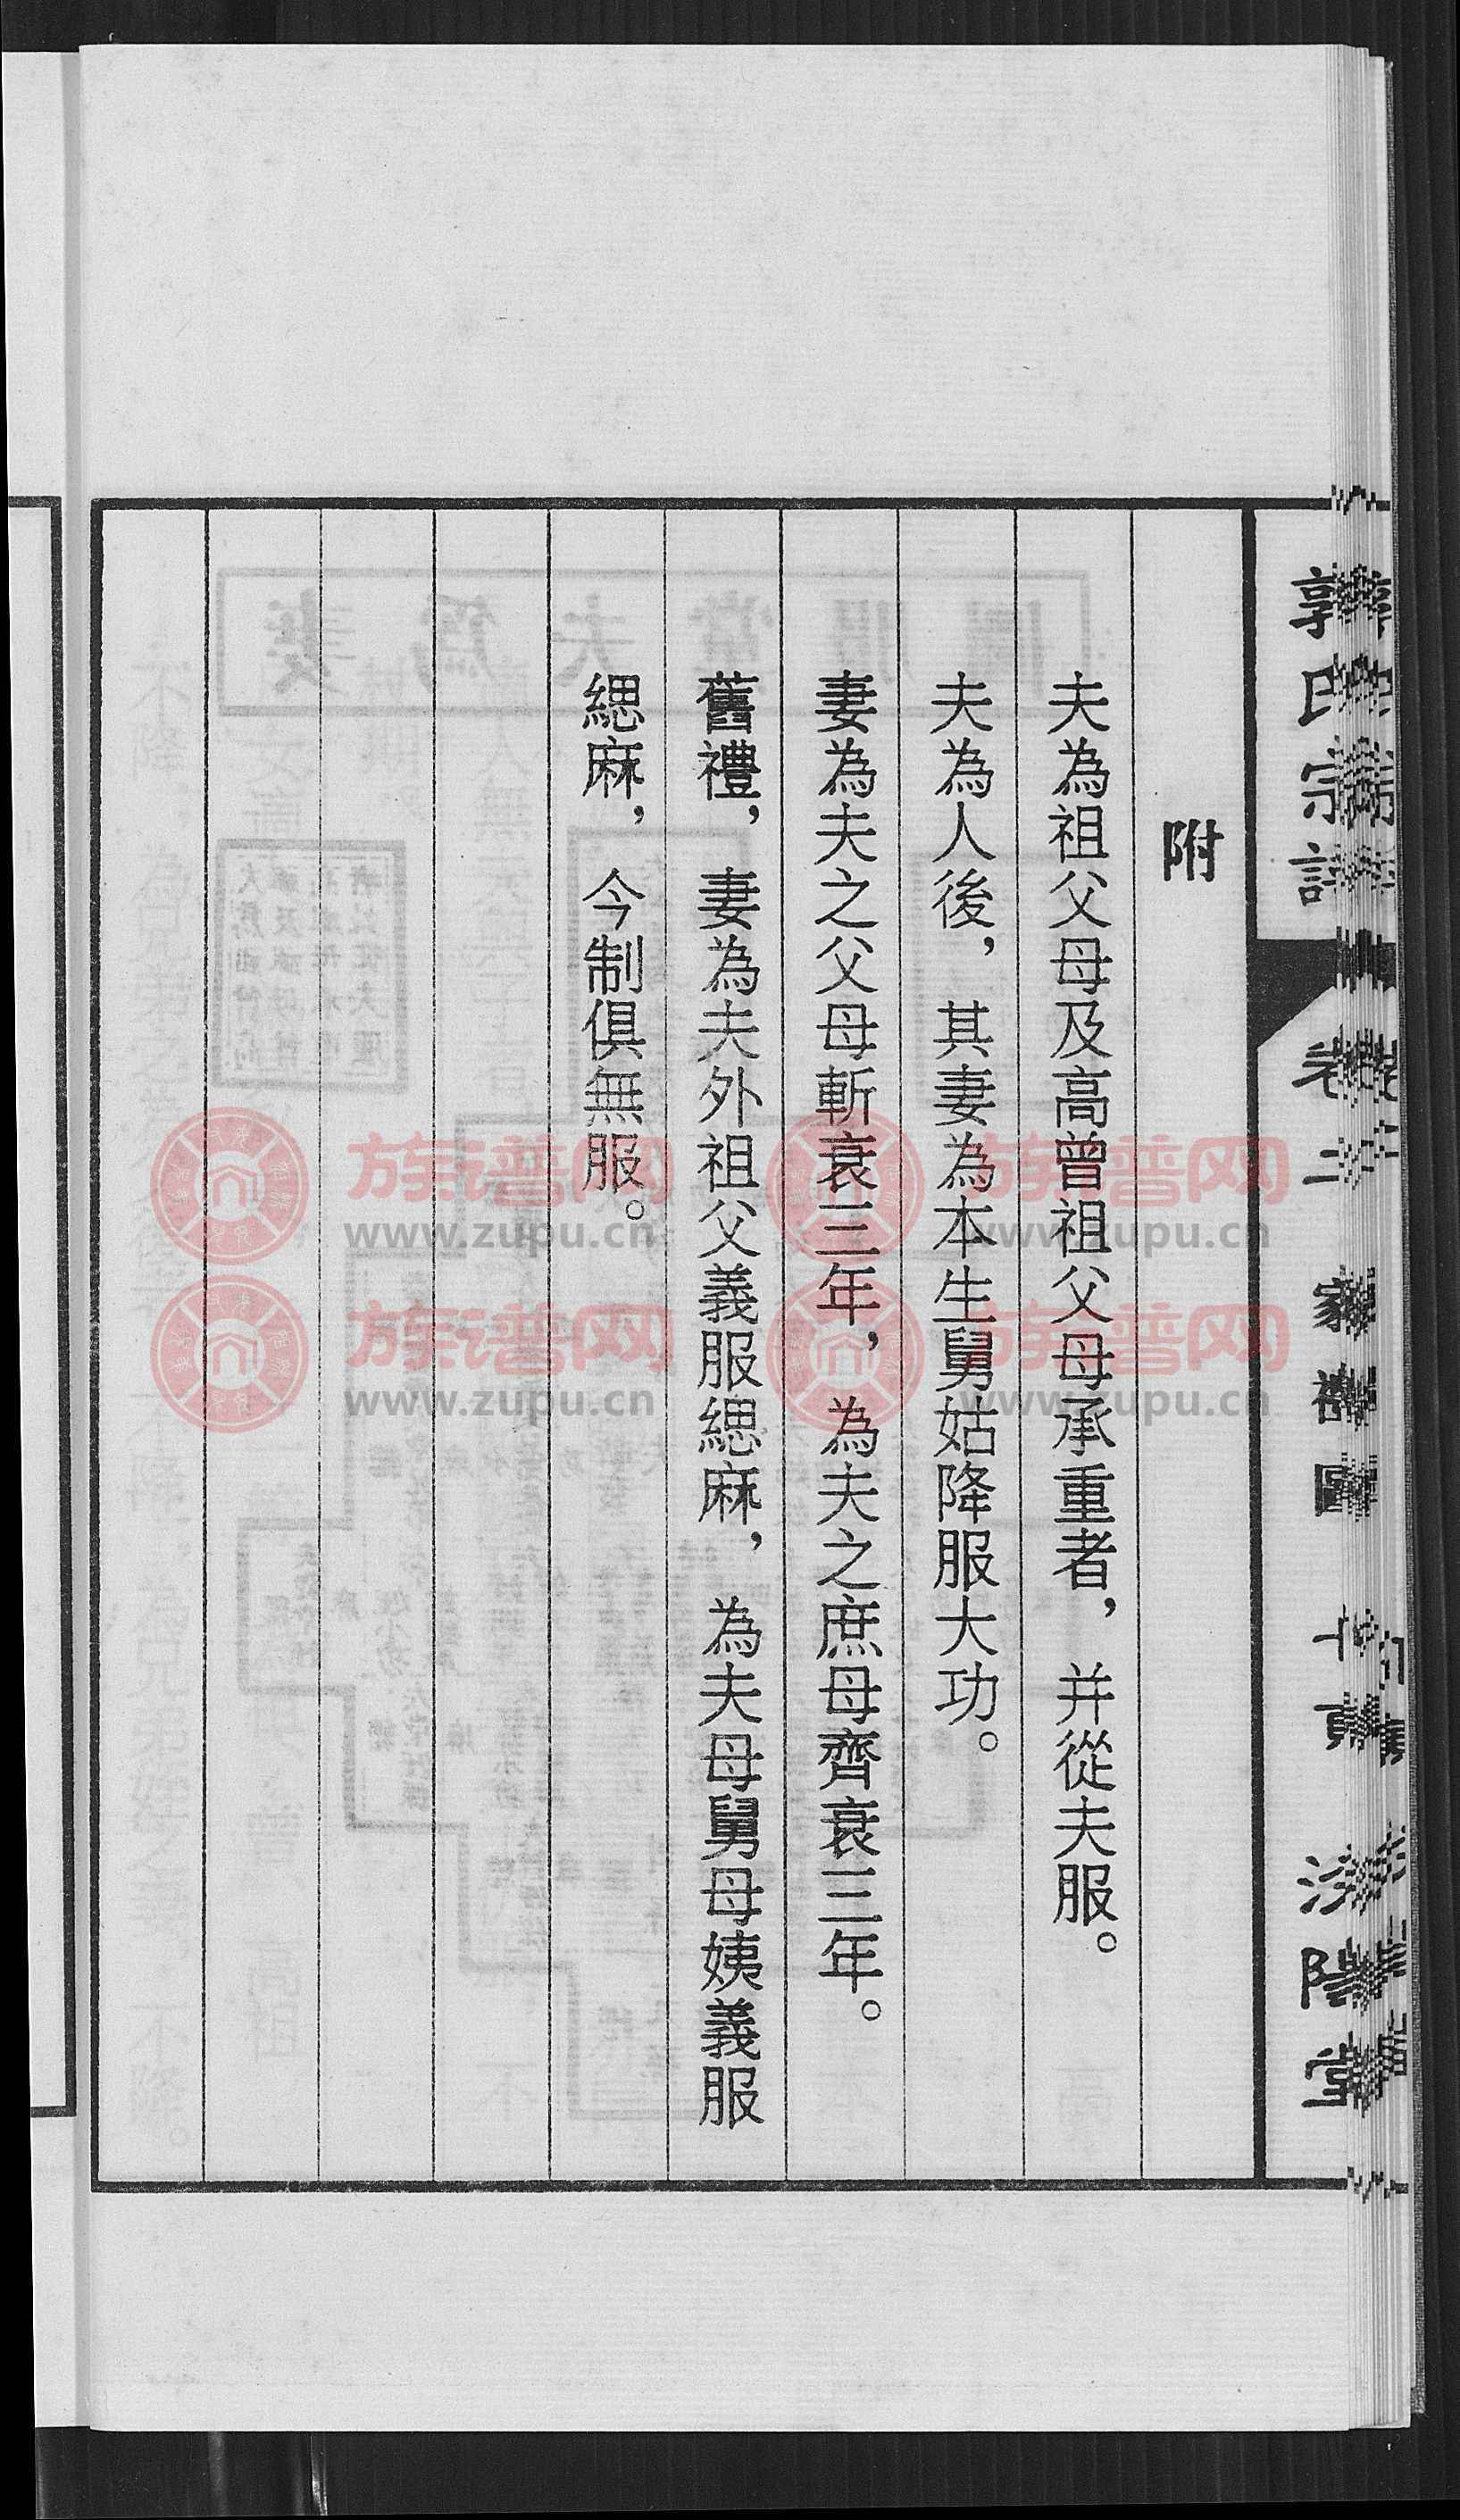 郭氏宗譜 卷二 家禮圖 汾陽堂
附
夫為祖父母及高曾祖父母承重者，并從夫服。
夫為人後，其妻為本生舅姑降服大功。
妻為夫之父母斬衰三年，為夫之庶母齊衰三年。
舊禮，妻為夫外祖父義服緦麻，為夫母舅母姨義服
緦麻，今制俱無服。
族谱网 族谱网
www.zupu.cn www.zupu.cn
族谱网 族谱网
www.zupu.cn www.zupu.cn